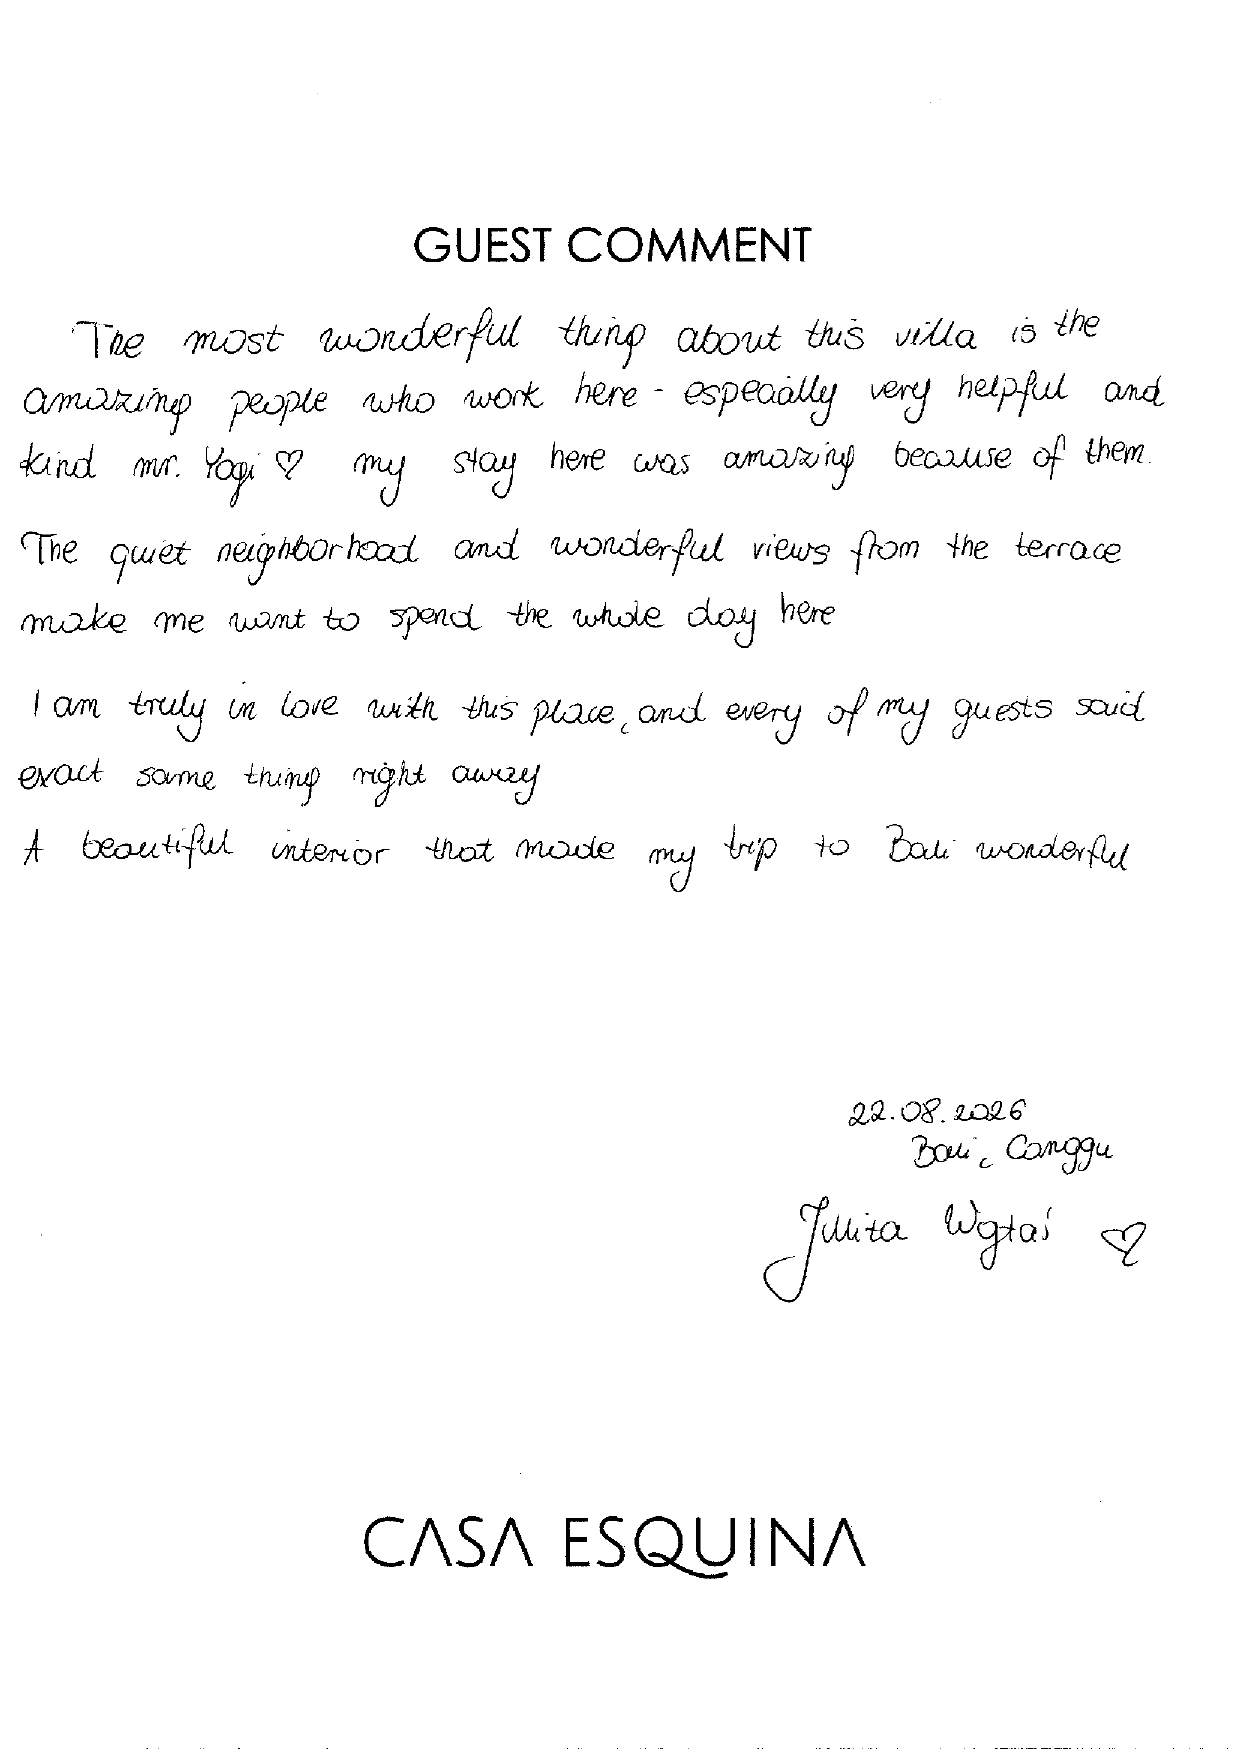 GUEST COMMENT
The most wonderful thing about this villa is the
amazing people who work here - especially very helpful and
kind mr. Yogi ♡ my stay here was amazing because of them.
The quiet neighborhood and wonderful views from the terrace
make me want to spend the whole day here
I am truly in love with this place, and every of my guests said
exact same thing right away
A beautiful interior that made my trip to Bali wonderful
22.08.2026
Bali, Canggu
♡
CASA ESQUINA